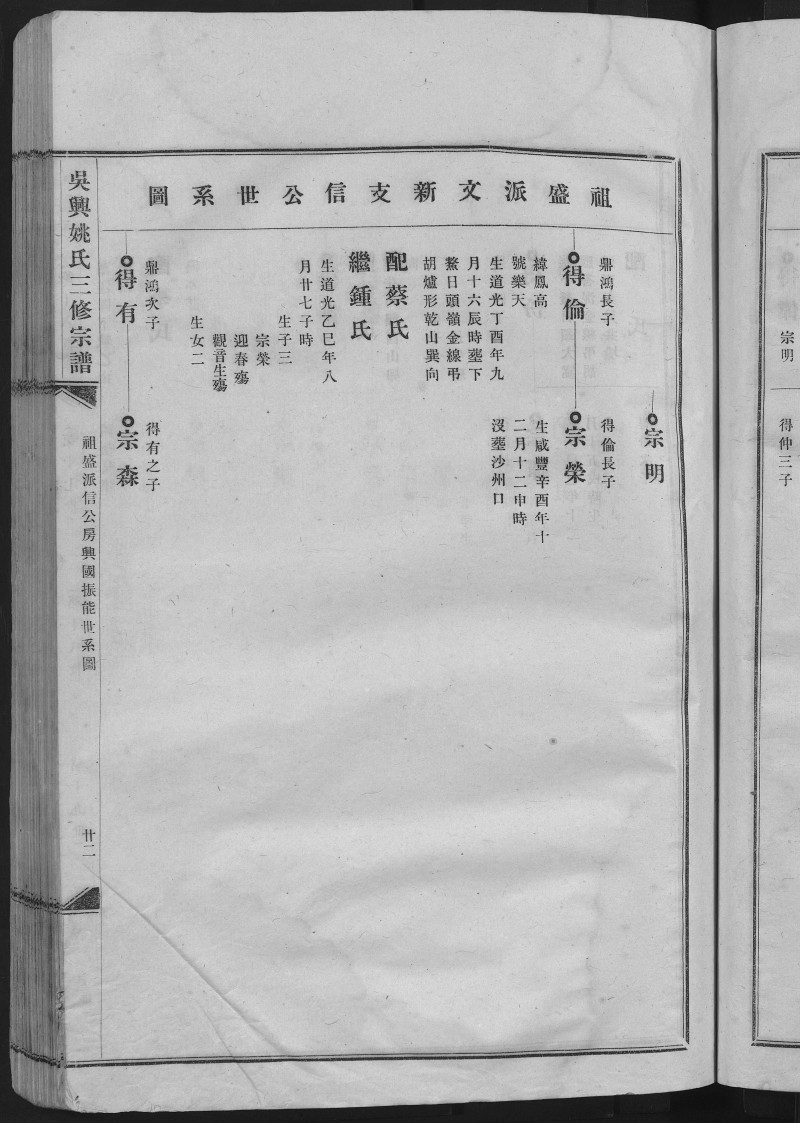 宗明
得仲三子
祖盛派文新支信公世系圖
宗明
鼎鴻長子
得倫
諱鳳高
號樂天
生道光丁酉年九
月十六辰時塟下
鰲日頭嶺金線弔
胡爐形乾山巽向
配蔡氏
繼鍾氏
生道光乙巳年八
月廿七子時
生子三
宗榮
迎春殤
觀音生殤
生女二
得倫長子
宗榮
生咸豐辛酉年十
二月十二申時
沒塟沙州口
鼎鴻次子
得有
得有之子
宗森
吳興姚氏三修宗譜
祖盛派信公房興國振能世系圖
廿二